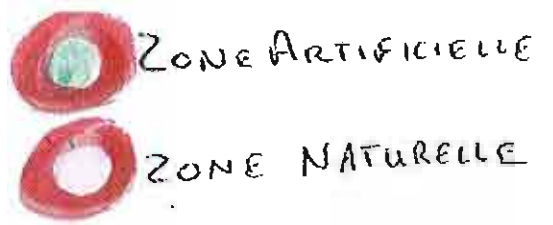 ZONE ARTIFICIELLE
ZONE NATURELLE